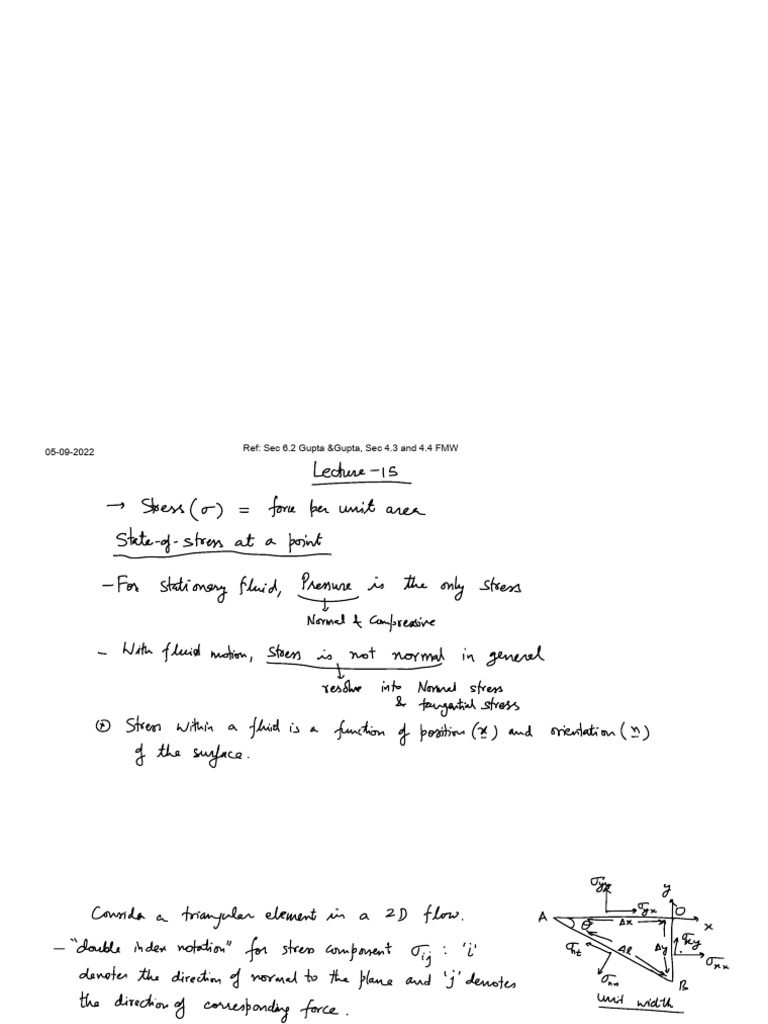 05-09-2022
Ref: Sec 6.2 Gupta &Gupta, Sec 4.3 and 4.4 FMW
Lecture-15
→ Stress (σ) = force per unit area
State-of-stress at a point
- For stationary fluid, Pressure is the only stress
Normal & Compressive
- With fluid motion, stress is not normal in general
resolve into Normal stress
& tangential stress
⊛ Stress within a fluid is a function of position (x) and orientation (n)
of the surface.
Consider a triangular element in a 2D flow.
- "double index notation" for stress component σij : 'i'
denotes the direction of normal to the plane and 'j' denotes
the direction of corresponding force.
y
σyx
A
O
θ
Δx
x
σnt
Δl
Δy
σxy
σxx
σnn
B
unit width